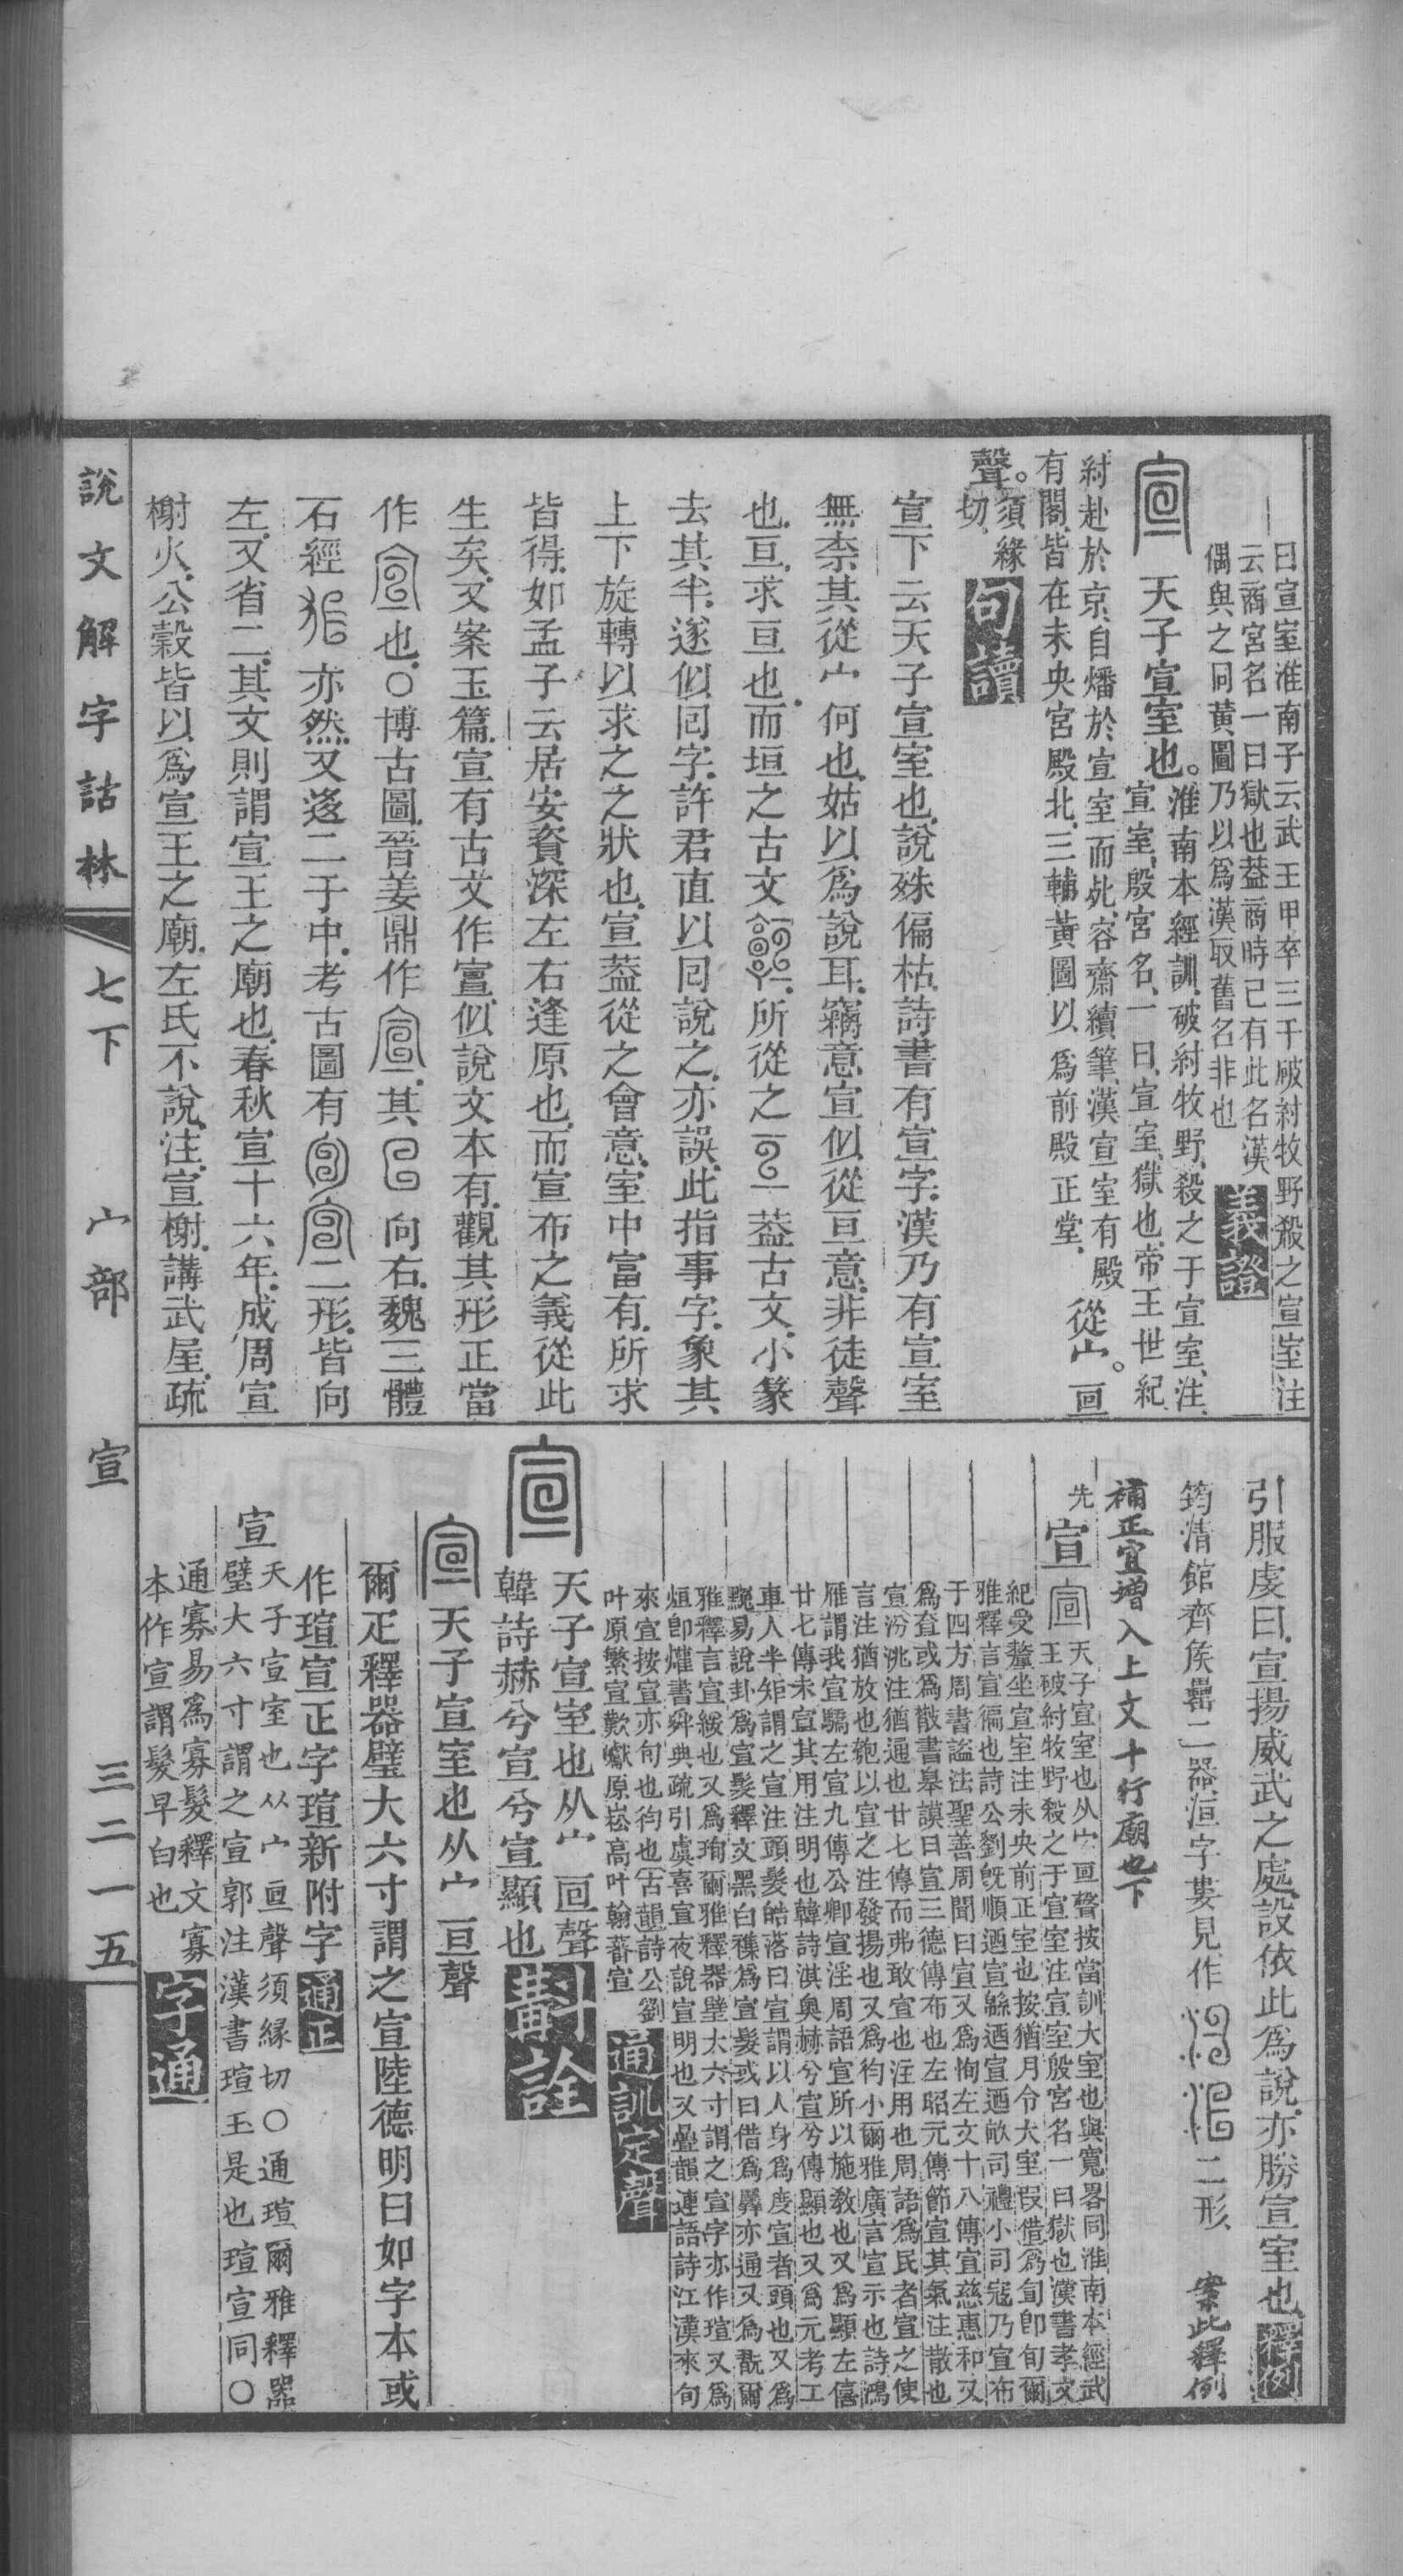 曰宣室淮南子云武王甲卒三千破紂牧野殺之宣室注
云商宮名一曰獄也葢商時已有此名漢
偶與之同黃圖乃以爲漢取舊名非也
義證
宣
天子宣室也。
淮南本經訓破紂牧野殺之于宣室注
宣室殷宮名一曰宣室獄也帝王世紀
紂赴於京自燔於宣室而死容齋續筆漢宣室有殿
有閣皆在未央宮殿北三輔黃圖以爲前殿正堂
從宀。亘
聲。
須緣
切
句讀
宣下云天子宣室也說殊偏枯詩書有宣字漢乃有宣室
無柰其從宀何也姑以爲說耳竊意宣似從亘意非徒聲
也亘求亘也而垣之古文所從之葢古文小篆
去其半遂似囘字許君直以囘說之亦誤此指事字象其
上下旋轉以求之之狀也宣葢從之會意室中富有所求
皆得如孟子云居安資深左右逢原也而宣布之義從此
生矣又案玉篇宣有古文作似說文本有觀其形正當
作也○博古圖晉姜鼎作其向右魏三體
石經亦然又迻二于中考古圖有二形皆向
左又省二其文則謂宣王之廟也春秋宣十六年成周宣
榭火公穀皆以爲宣王之廟左氏不說注宣榭講武屋疏
引服虔曰宣揚威武之處設依此爲說亦勝宣室也
釋例
筠清館齊矦罍二器洹字婁見作二形
案此釋例
補正宜增入上文十行廟也下
先
宣
天子宣室也从宀亘聲按當訓大室也與寬畧同淮南本經武
王破紂牧野殺之于宣室注宣室殷宮名一曰獄也漢書孝文
紀受釐坐宣室注未央前正室也按猶月令大室叚借爲旬卽旬爾
雅釋言宣徧也詩公劉旣順迺宣緜迺宣迺畝司禮小司寇乃宣布
于四方周書謚法聖善周聞曰宣又爲恂左文十八傳宣慈惠和又
爲亝或爲散書皋謨日宣三德傳布也左昭元傳節宣其氣注散也
宣汾洮注猶通也廿七傳而弗敢宣也注用也周語爲民者宣之使
言注猶放也匏以宣之注發揚也又爲徇小爾雅廣言宣示也詩鴻
雁謂我宣驕左宣九傳公卿宣淫周語宣所以施教也又爲顯左僖
廿七傳未宣其用注明也韓詩淇奧赫兮宣兮傳顯也又爲元考工
車人半矩謂之宣注頭髮皓落曰宣謂以人身爲度宣者頭也又爲
易說卦爲宣髮釋文黑白襍爲宣髮或曰借爲亦通又爲爾
雅釋言宣緩也又爲珣爾雅釋器璧大六寸謂之宣字亦作瑄又爲
烜卽爟書舜典疏引虞喜宣夜說宣明也又疊韻連語詩江漢來旬
來宣按宣亦旬也徇也古韻詩公劉
叶原繁宣歎巘原崧高叶翰蕃宣
通訓定聲
宣
天子宣室也从宀囘聲
韓詩赫兮宣兮宣顯也
斠詮
宣
天子宣室也从宀亘聲
爾疋釋器璧大六寸謂之宣陸德明曰如字本或
作瑄宣正字瑄新附字
通正
宣
天子宣室也从宀亘聲須緣切○通瑄爾雅釋器
璧大六寸謂之宣郭注漢書瑄玉是也瑄宣同○
通寡易爲寡髮釋文寡
本作宣謂髮早白也
字通
說文解字詁林
七下
宀部
宣
三二一五